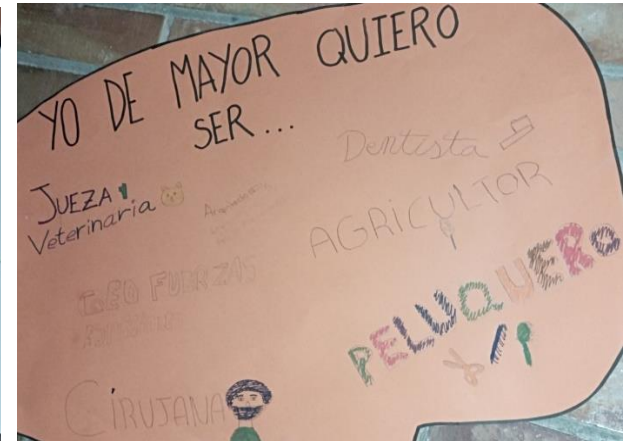 YO DE MAYOR QUIERO
SER...
JUEZA
Veterinaria
Dentista
AGRICULTOR
FUERZAS
PELUQUERO
CIRUJANA